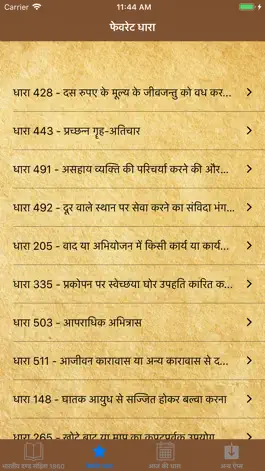 11:44 AM
फेवरेट धारा
धारा 428 - दस रुपए के मूल्य के जीवजन्तु को वध कर...
धारा 443 - प्रच्छन्न गॄह-अतिचार
धारा 491 - असहाय व्यक्ति की परिचर्या करने की और...
धारा 492 - दूर वाले स्थान पर सेवा करने का संविदा भंग...
धारा 205 - वाद या अभियोजन में किसी कार्य या कार्य...
धारा 335 - प्रकोपन पर स्वेच्छया घोर उपहति कारित क...
धारा 503 - आपराधिक अभित्रास
धारा 511 - आजीवन कारावास या अन्य कारावास से द...
धारा 148 - घातक आयुध से सज्जित होकर बल्वा करना
धारा 265 - खोटे बाट या माप का कपटपूर्वक उपयोग
भारतीय दण्ड संहिता 1860
आज की धारा
अन्य ऐप्स